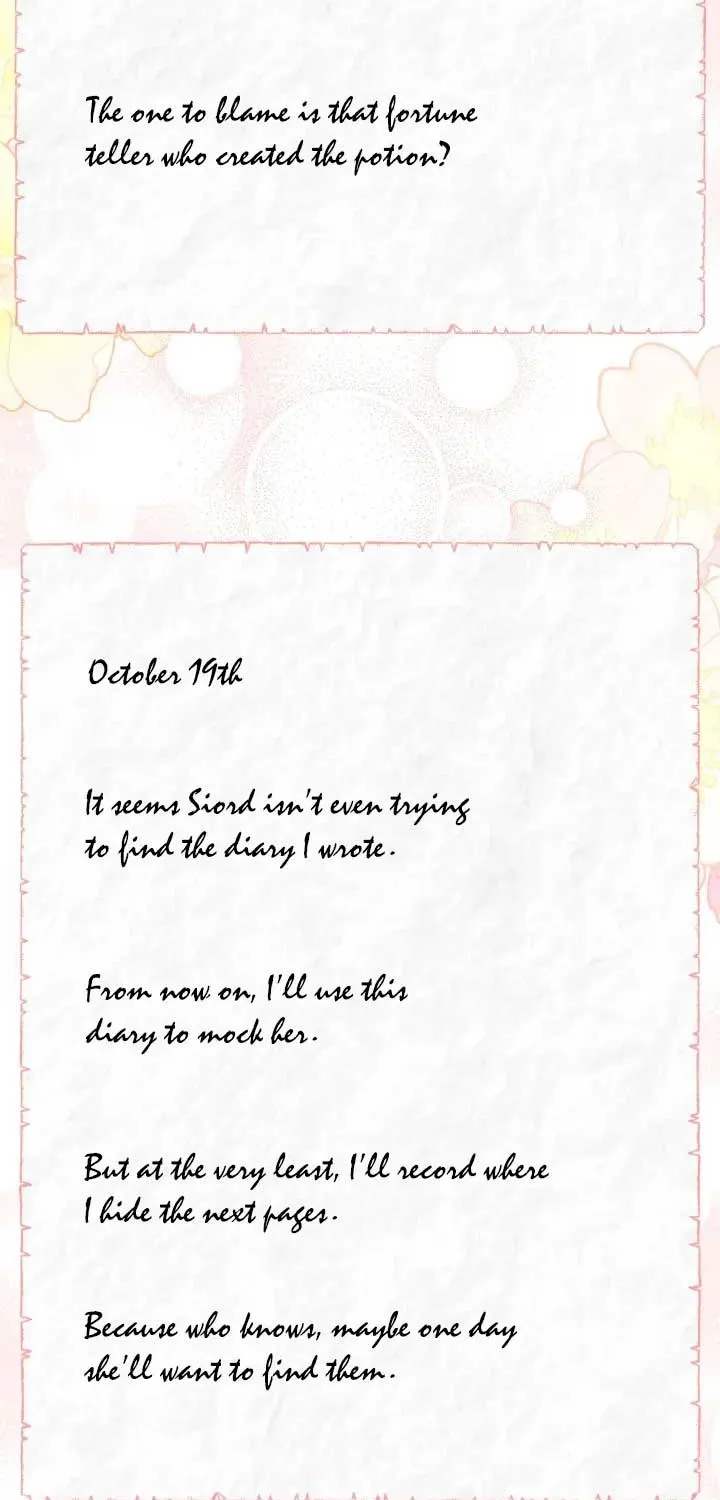 The one to blame is that fortune
teller who created the potion?
October 19th
It seems Siord isn't even trying
to find the diary I wrote.
From now on, I'll use this
diary to mock her.
But at the very least, I'll record where
I hide the next pages.
Because who knows, maybe one day
she'll want to find them.